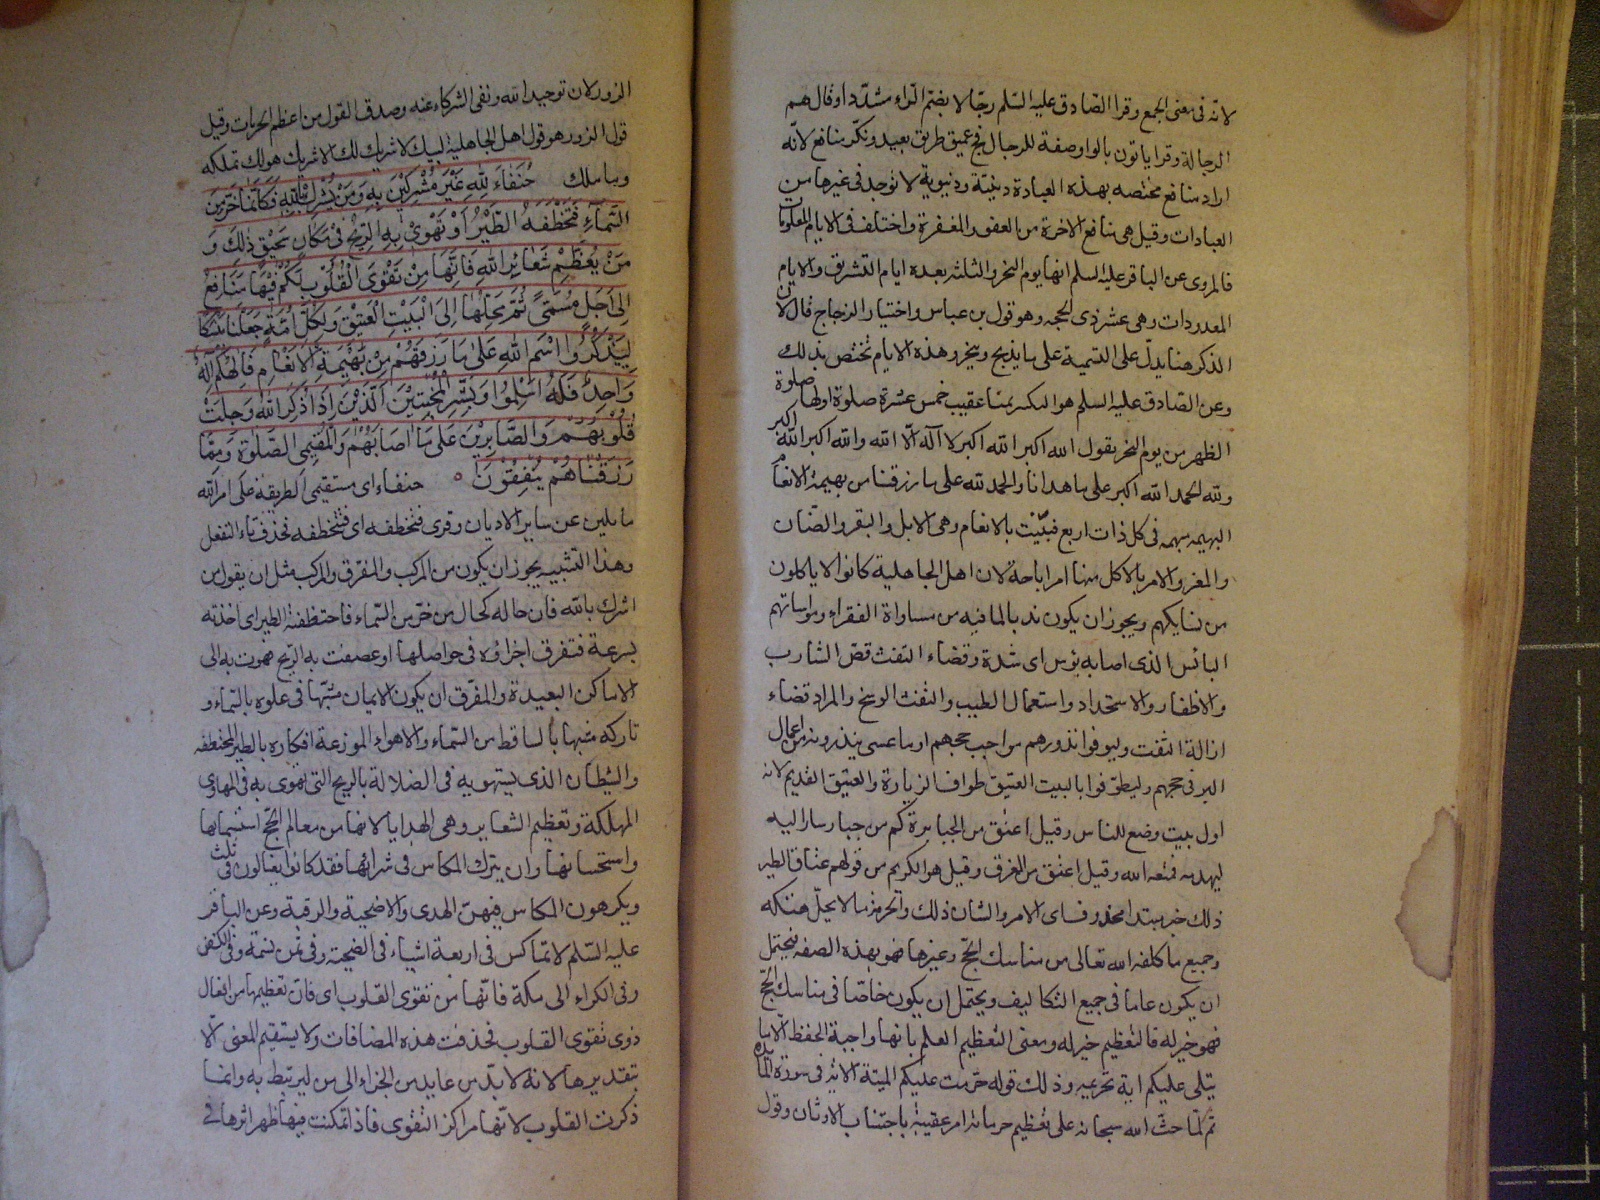 لانّه فى معنى الجمع وقرا الصّادق عليه السّلم رجّالا بضمّ الرّاء مشدّدا وقال هم
الرجالة وقرا ياتون بالواو صفة للرجال فجّ عميق طريق بعيد ونكّر منافع لانّه
اراد منافع مختصه بهذه العبادة دينيّة ودنيوية لا توجد فى غيرها من
العبادات وقيل هى منافع الاخرة من العفو والمغفرة واختلف فى الايام المعلومات
فالمروى عن الباقر عليه السلم انها يوم النحر والثلثه بعده ايام التشريق والايام
المعدودات وهى عشر ذى الحجه وهو قول بن عباس واختيار الزجاج قال لان
الذكر هنا يدلّ على التسمية على ما يذبح وينحر وهذه الايام تختص بذلك
وعن الصّادق عليه السلم هو التكبير بمنا عقيب خمس عشرة صلوة اولها صلوة
الظهر من يوم النحر يقول الله اكبر الله اكبر لا اله الّا الله والله اكبر الله اكبر
ولله الحمد الله اكبر على ما هدانا والحمد لله على ما رزقنا من بهيمة الانعام
البهيمه مبهمه فى كل ذات اربع فبيّنت بالانعام وهى الابل والبقر والضان
والمعز والامر بالاكل منها امر اباحة لان اهل الجاهلية كانوا لا ياكلون
من نسايكهم ويجوز ان يكون ندبا لما فيه من مساواة الفقراء ومواساتهم
البائس الذى اصابه بؤس اى شدة وقضاء التفث قصّ الشارب
والاظفار والاستحداد واستعمال الطيب والتفث الوسخ والمراد قضاء
ازالة التفث وليوفوا نذورهم مواجب حجهم او ما عسى ينذرونه من اعمال
البر فى حجهم وليطوّفوا بالبيت العتيق طواف الزيارة والعتيق القديم لانه
اول بيت وضع للناس وقيل اعتق من الجبابرة كم من جبار سار اليه
ليهدمه فمنعه الله وقيل اعتق من الغرق وقيل هو الكريم من قولهم عتاق الطير
ذلك خبر مبتدا محذوف اى الامر والشان ذلك والحرمة ما لا يحلّ هتكه
وجميع ما كلفه الله تعالى من مناسك الحجّ وغيرها فهو بهذه الصفه فيحتمل
ان يكون عاما فى جميع التكاليف ويحتمل ان يكون خاصّا فى مناسك الحجّ
فهو خير له فالتعظيم خير له ومعنى التعظيم العلم بانها واجبة الحفظ الّا ما
يتلى عليكم اية تحريمه وذلك قوله حرّمت عليكم الميتة الاية فى سورة المائده
ثم لمّا حثّ الله سبحانه على تعظيم حرماته امر عقيبه باجتناب الاوثان وقول
الزور لان توحيد الله ونفى الشركاء عنه وصدق القول من اعظم الحرمات وقيل
قول الزور هو قول اهل الجاهلية لبيك لا شريك لك الا شريك هو لك تملكه
وما ملك حُنَفَاءَ لِلَّهِ غَيْرَ مُشْرِكِيْنَ بِهِ وَمَنْ يُشْرِكْ بِاللَّهِ فَكَاَنَّمَا خَرَّ مِنَ
السَّمَآءِ فَتَخْطَفُهُ الطَّيْرُ اَوْ تَهْوِىْ بِهِ الرِّيْحُ فِىْ مَكَانٍ سَحِيْقٍ ذٰلِكَ وَ
مَنْ يُعَظِّمْ شَعَائِرَ اللَّهِ فَاِنَّهَا مِنْ تَقْوَى الْقُلُوْبِ لَكُمْ فِيْهَا مَنَافِعُ
اِلٰى اَجَلٍ مُسَمًّى ثُمَّ مَحِلُّهَا اِلَى الْبَيْتِ الْعَتِيْقِ وَلِكُلِّ اُمَّةٍ جَعَلْنَا مَنْسَكًا
لِيَذْكُرُوا اسْمَ اللَّهِ عَلٰى مَا رَزَقَهُمْ مِنْ بَهِيْمَةِ الْاَنْعَامِ فَاِلٰهُكُمْ اِلٰهٌ
وَاحِدٌ فَلَهُ اَسْلِمُوا وَبَشِّرِ الْمُخْبِتِيْنَ الَّذِيْنَ اِذَا ذُكِرَ اللَّهُ وَجِلَتْ
قُلُوْبُهُمْ وَالصَّابِرِيْنَ عَلٰى مَا اَصَابَهُمْ وَالْمُقِيْمِى الصَّلٰوةِ وَمِمَّا
رَزَقْنَاهُمْ يُنْفِقُوْنَ حنفاء اى مستقيمى الطريقة على امر الله
مايلين عن ساير الاديان وقرى فتخطفه اى فتتخطفه فحذف تاء التفعل
وهذا التشبيه يجوز ان يكون من المركب والمفرق والمركب مثل ان يقول من
اشرك بالله فان حاله كحال من خرّ من السّماء فاختطفته الطير اى اخذته
بسرعة فتفرق اجزاؤه فى حواصلها او عصفت به الرّيح هوت به الى
الاماكن البعيدة والمفرّق ان يكون الايمان مشبّها فى علوه بالسّماء و
تاركه مشبها بالساقط من السّماء والاهواء الموزعة افكاره بالطير المختطفه
والشيطان الذى يستهويه فى الضلالة بالريح التى تهوى به فى المهاوى
المهلكة وتعظيم الشعاير وهى الهدايا لانها من معالم الحجّ استسمانها
واستحسانها وان يترك المكاس فى شرائها فقد كانوا يغالون فى ثلث
ويكرهون المكاس فيهنّ الهدى والاضحية والرقبة وعن الباقر
عليه السّلم لا تماكس فى اربعة اشياء فى الضحيه وفى ثمن نسمة وفى الكفن
وفى الكراء الى مكة فانّها من تقوى القلوب اى فان تعظيمها من افعال
ذوى تقوى القلوب فحذفت هذه المضافات ولا يستقيم المعنى الّا
بتقديرها لانه لا بدّ من عايد من الجزاء الى من ليرتبط به وانما
ذكرت القلوب لانّها مراكز التقوى فاذا تمكنت فيها ظهر اثرها فى